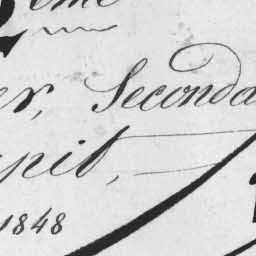 2ème
er, Seconda
pit,
1848